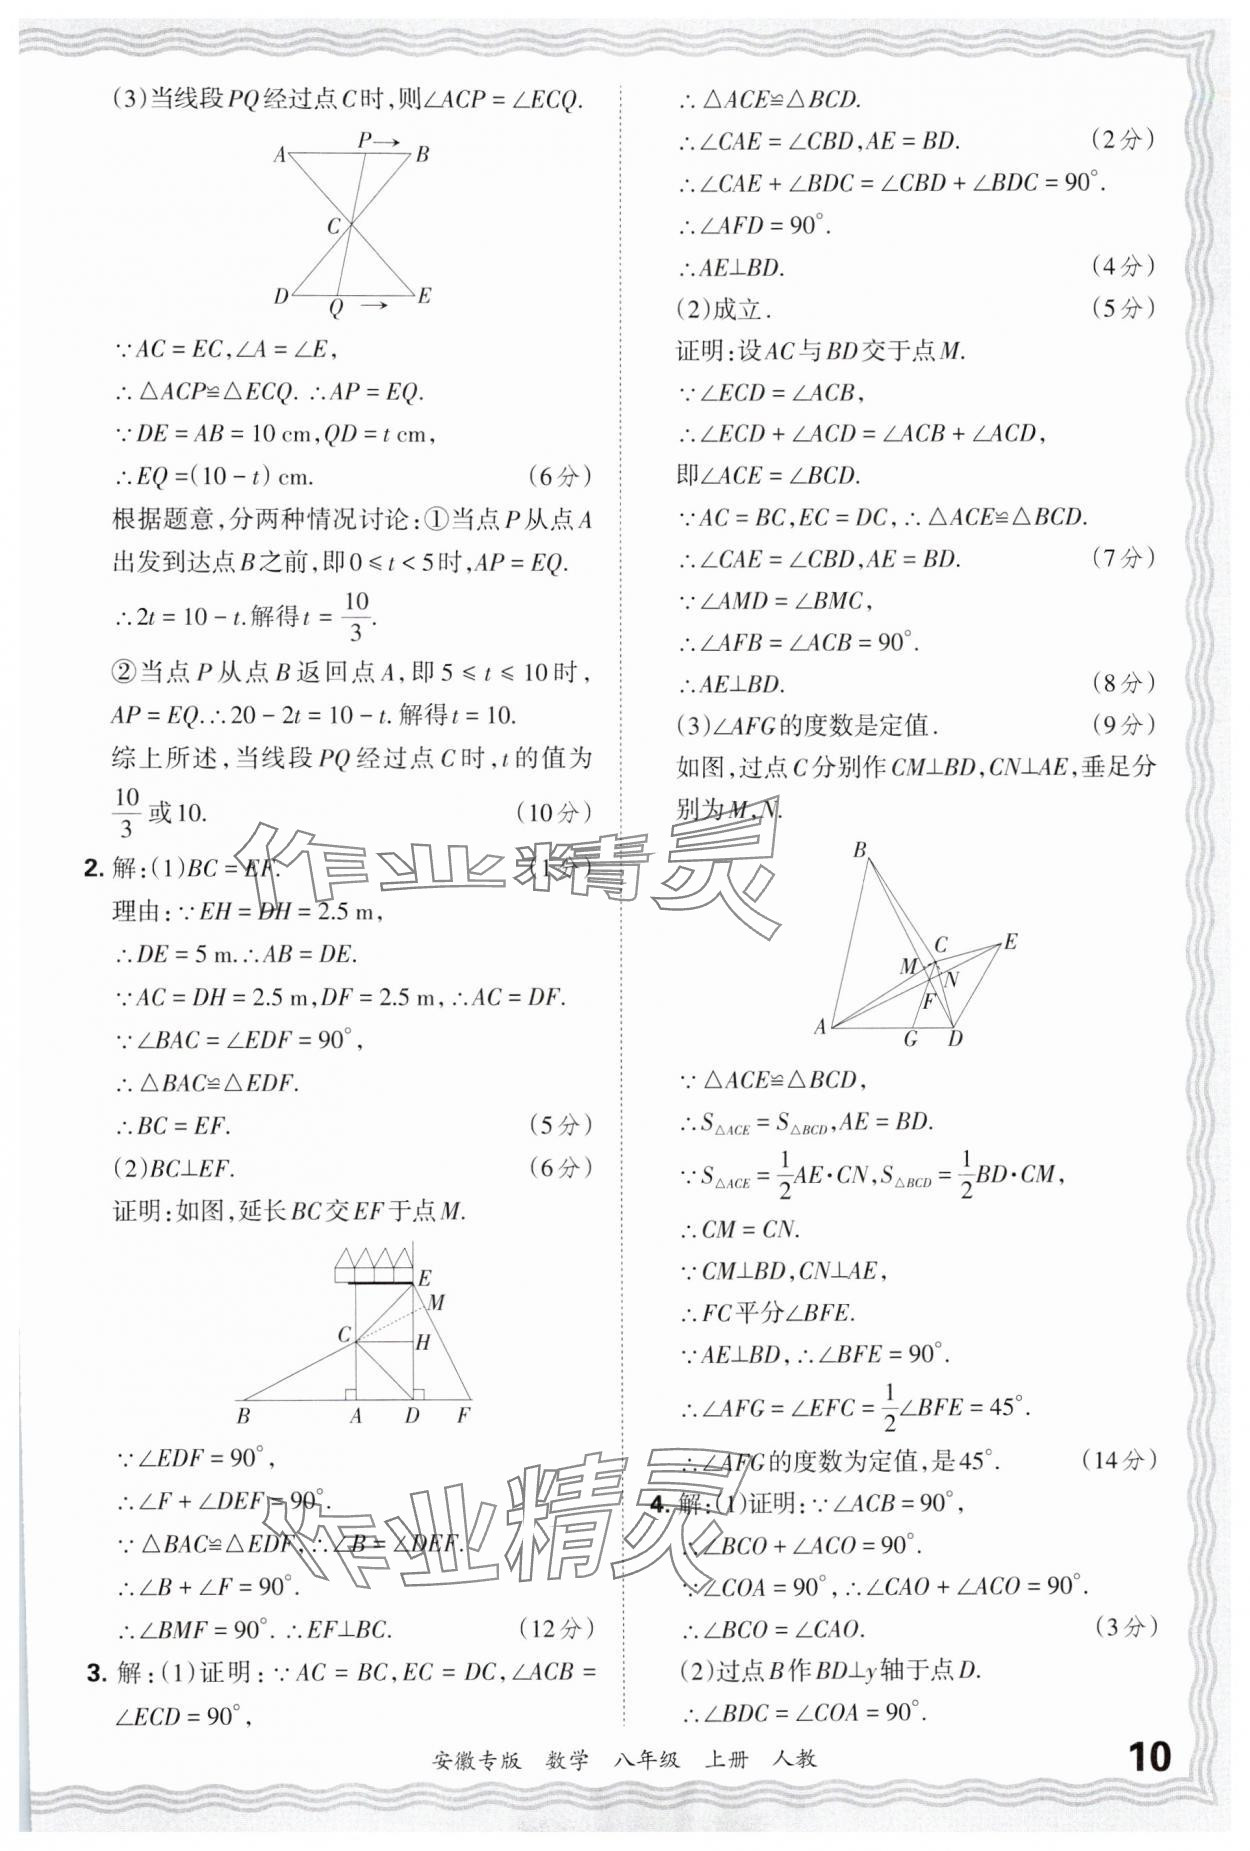 (3)当线段PQ经过点C时,则∠ACP=∠ECQ.
P
A
B
C
D
Q
E
∵AC=EC,∠A=∠E,
∴△ACP≌△ECQ.∴AP=EQ.
∵DE=AB=10 cm,QD=t cm,
∴EQ=(10-t) cm. (6分)
根据题意,分两种情况讨论:①当点P从点A
出发到达点B之前,即0≤t<5时,AP=EQ.
∴2t=10-t.解得t=10/3.
②当点P从点B返回点A,即5≤t≤10时,
AP=EQ.∴20-2t=10-t.解得t=10.
综上所述,当线段PQ经过点C时,t的值为
10/3或10. (10分)
2. 解:(1)BC=EF. (1分)
理由:∵EH=DH=2.5 m,
∴DE=5 m.∴AB=DE.
∵AC=DH=2.5 m,DF=2.5 m,∴AC=DF.
∵∠BAC=∠EDF=90°,
∴△BAC≌△EDF.
∴BC=EF. (5分)
(2)BC⊥EF. (6分)
证明:如图,延长BC交EF于点M.
E
M
C
H
B
A
D
F
∵∠EDF=90°,
∴∠F+∠DEF=90°.
∵△BAC≌△EDF,∴∠B=∠DEF.
∴∠B+∠F=90°.
∴∠BMF=90°.∴EF⊥BC. (12分)
3. 解:(1)证明:∵AC=BC,EC=DC,∠ACB=
∠ECD=90°,
∴△ACE≌△BCD.
∴∠CAE=∠CBD,AE=BD. (2分)
∴∠CAE+∠BDC=∠CBD+∠BDC=90°.
∴∠AFD=90°.
∴AE⊥BD. (4分)
(2)成立. (5分)
证明:设AC与BD交于点M.
∵∠ECD=∠ACB,
∴∠ECD+∠ACD=∠ACB+∠ACD,
即∠ACE=∠BCD.
∵AC=BC,EC=DC,∴△ACE≌△BCD.
∴∠CAE=∠CBD,AE=BD. (7分)
∵∠AMD=∠BMC,
∴∠AFB=∠ACB=90°.
∴AE⊥BD. (8分)
(3)∠AFG的度数是定值. (9分)
如图,过点C分别作CM⊥BD,CN⊥AE,垂足分
别为M,N.
B
C
E
M
N
F
A
G
D
∵△ACE≌△BCD,
∴S△ACE=S△BCD,AE=BD.
∵S△ACE=1/2AE·CN,S△BCD=1/2BD·CM,
∴CM=CN.
∵CM⊥BD,CN⊥AE,
∴FC平分∠BFE.
∵AE⊥BD,∴∠BFE=90°.
∴∠AFG=∠EFC=1/2∠BFE=45°.
∴∠AFG的度数为定值,是45°. (14分)
4. 解:(1)证明:∵∠ACB=90°,
∴∠BCO+∠ACO=90°.
∵∠COA=90°,∴∠CAO+∠ACO=90°.
∴∠BCO=∠CAO. (3分)
(2)过点B作BD⊥y轴于点D.
∴∠BDC=∠COA=90°.
作业精灵
作业精灵
安徽专版 数学 八年级 上册 人教
10